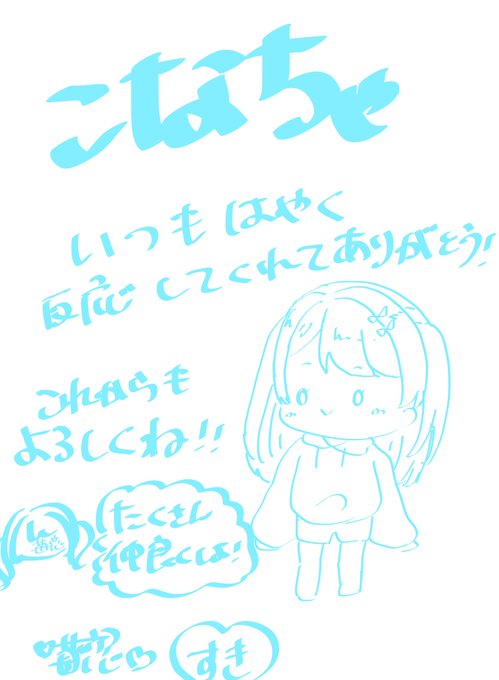 こなちゃ
いつも はやく
反応 してくれてありがとう!
これからも
よろしくね!!
たくさん
仲良くしよ!
すき